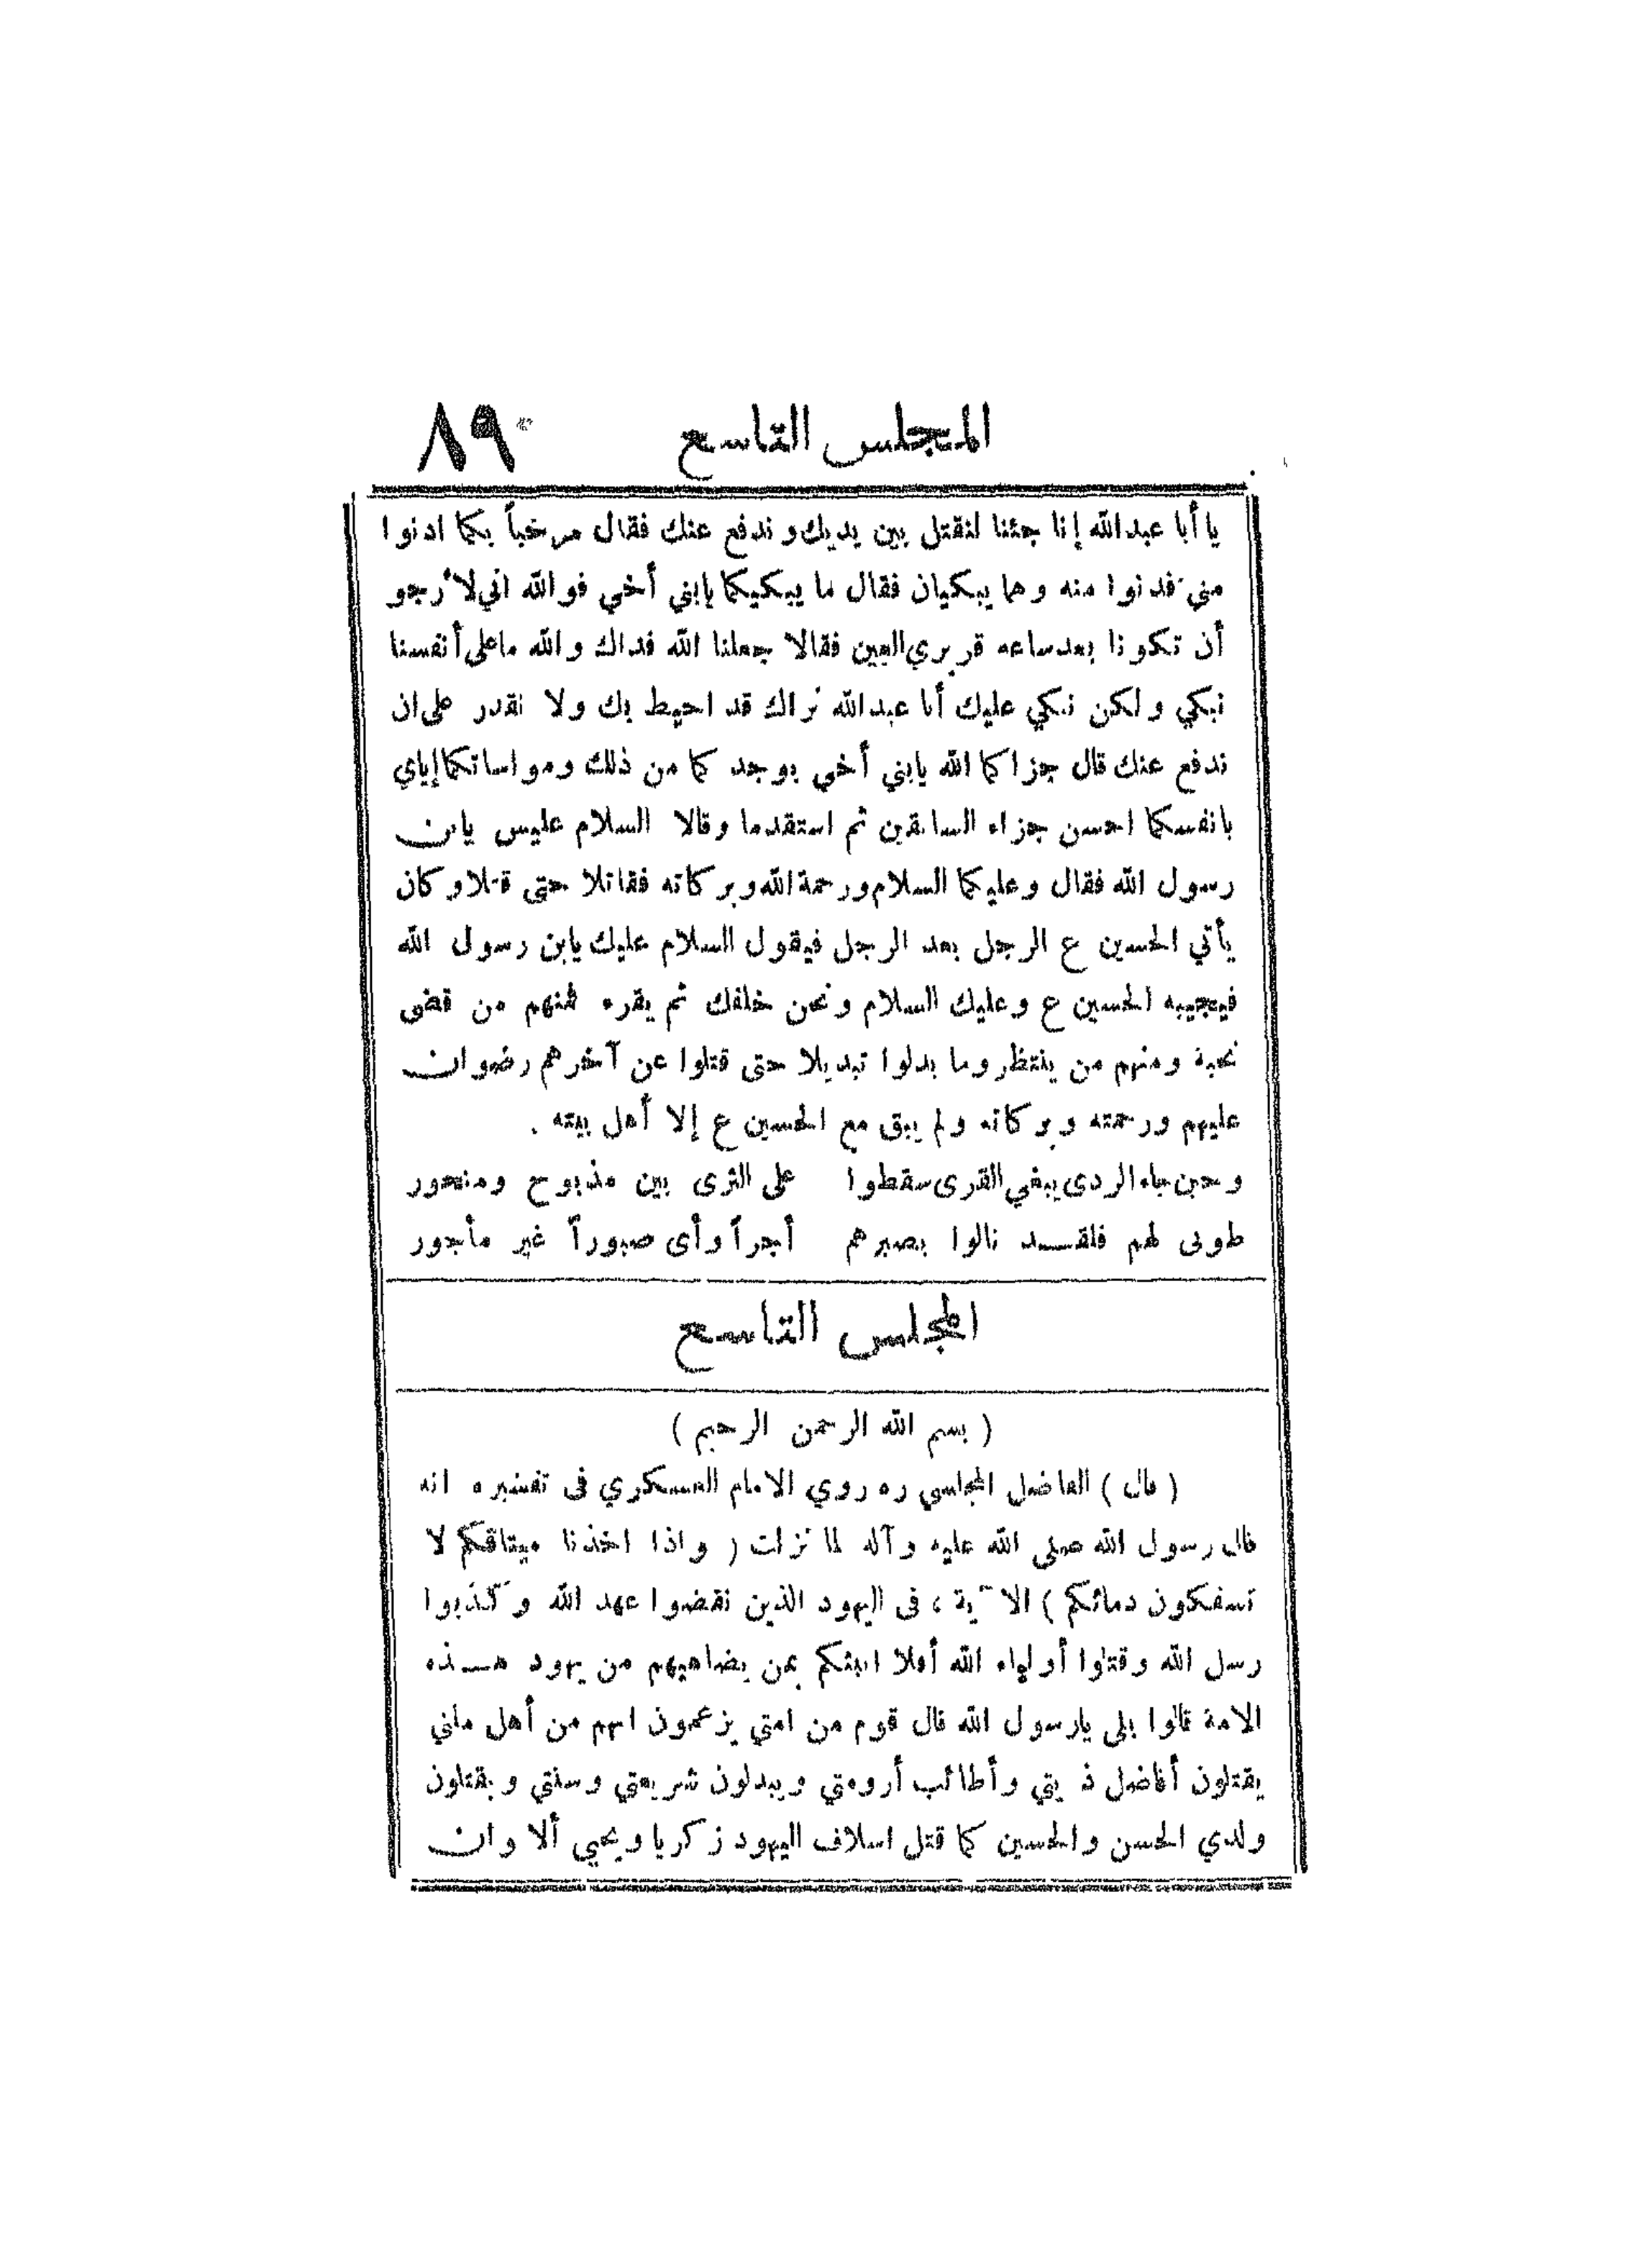 المجلس التاسع ٨٩
يا أبا عبدالله إنا جئنا لنقتل بين يديك وندفع عنك فقال مرخباً بكما ادنوا
مني فدنوا منه وهما يبكيان فقال ما يبكيكما يابني أخي فوالله اني لأرجو
أن تكونا بعد ساعه قريري العين فقالا جعلنا الله فداك والله ما على أنفسنا
نبكي ولكن نبكي عليك أبا عبدالله نراك قد احيط بك ولا نقدر على ان
ندفع عنك قال جزاكما الله يابني أخي بوجدكما من ذلك ومواساتكما إياي
بانفسكما احسن جزاء السابقين ثم استقدما وقالا السلام عليس يابن
رسول الله فقال وعليكما السلام ورحمة الله وبركاته فقاتلا حتى قتلا وكان
يأتي الحسين ع الرجل بعد الرجل فيقول السلام عليك يابن رسول الله
فيجيبه الحسين ع وعليك السلام ونحن خلفك ثم يقره فمنهم من قضى
نحبة ومنهم من ينتظر وما بدلوا تبديلا حتى قتلوا عن آخرهم رضوان
عليهم ورحمته وبركاته ولم يبق مع الحسين ع إلا أهل بيته .
وحين جاء الردى يبغي القرى سقطوا على الثرى بين مذبوح ومنحور
طوبى لهم فلقد نالوا بصبرهم أجراً وأى صبوراً غير مأجور
المجلس التاسع
( بسم الله الرحمن الرحيم )
( قال ) الفاضل المجلسي ره روي الامام العسكري فى تفسيره انه
قال رسول الله صلى الله عليه وآله لما نزلت ( واذا اخذنا ميثاقكم لا
تسفكون دمائكم ) الآية ، فى اليهود الذين نقضوا عهد الله وكذبوا
رسل الله وقتلوا أولياء الله أفلا انبئكم بمن يضاهيهم من يهود هذه
الامة قالوا بلى يارسول الله قال قوم من امتي يزعمون انهم من أهل ملتي
يقتلون أفاضل ذ يتي وأطائب أرومتي ويبدلون شريعتي وسنتي ويقتلون
ولدي الحسن والحسين كما قتل اسلاف اليهود زكريا ويحيى ألا وان